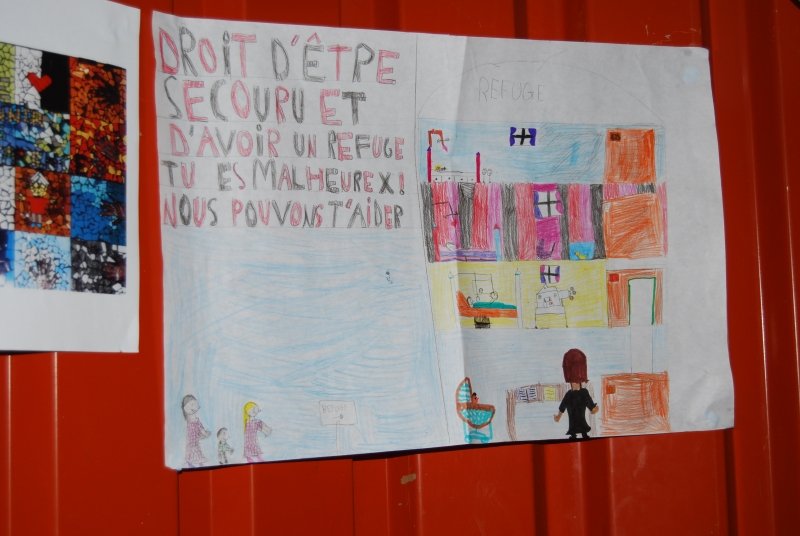 DROIT D'ÊTRE
SECOURU ET
D'AVOIR UN REFUGE
TU ES MALHEUREX!
NOUS POUVONS T'AIDER
REFUGE